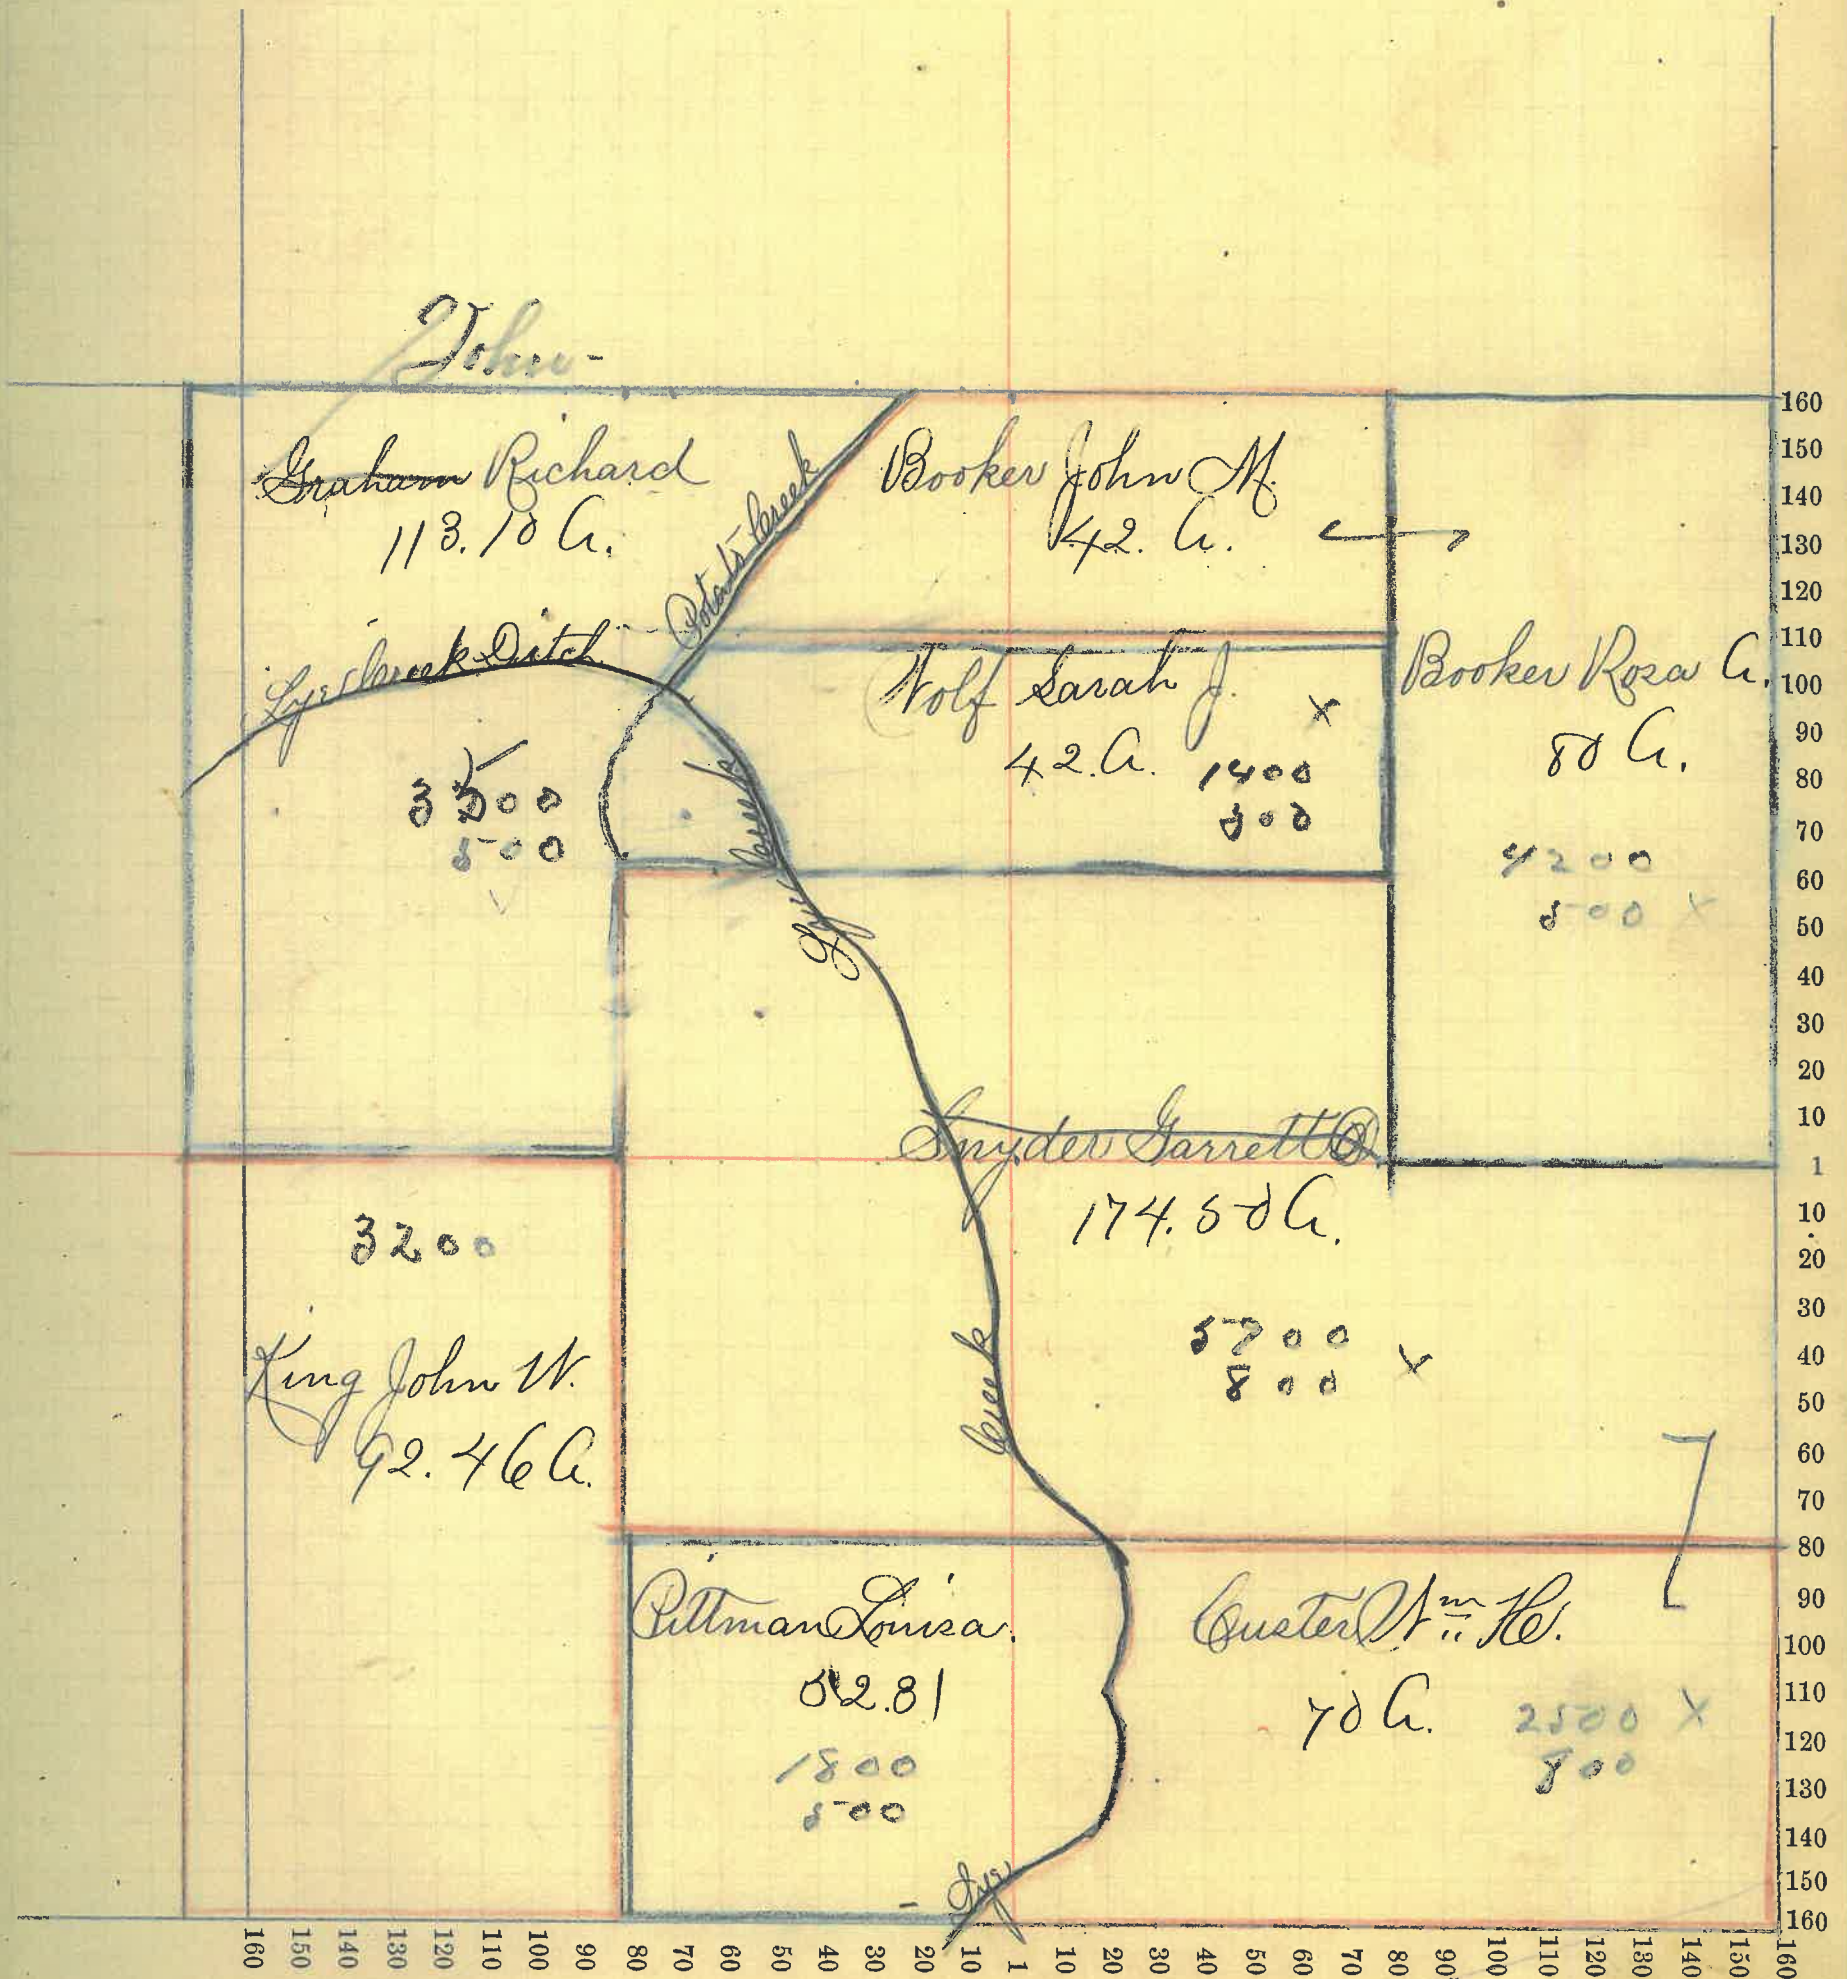 John
Graham Richard
113.10 A.
Potato Creek
Booker John M.
42. A.
Lye Creek Ditch
Wolf Sarah J.
x
42. A.
1400
Booker Rosa A.
80 A.
4200
500 x
500
Lye Creek
Snyder Garrett
174.50 A.
5700
800
x
3200
King John W.
92.46 A.
Creek
Pittman Louisa.
52.81
1800
500
Custer Wm. H.
70 A.
2500 x
800
Lye
160
150
140
130
120
110
100
90
80
70
60
50
40
30
20
10
1
10
20
30
40
50
60
70
80
90
100
110
120
130
140
150
160
160 150 140 130 120 110 100 90 80 70 60 50 40 30 20 10 1 10 20 30 40 50 60 70 80 90 100 110 120 130 140 150 160